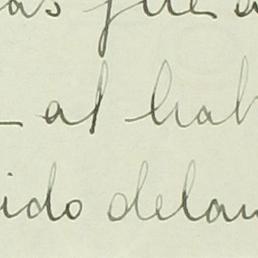 as que a
- al hab
ido delan